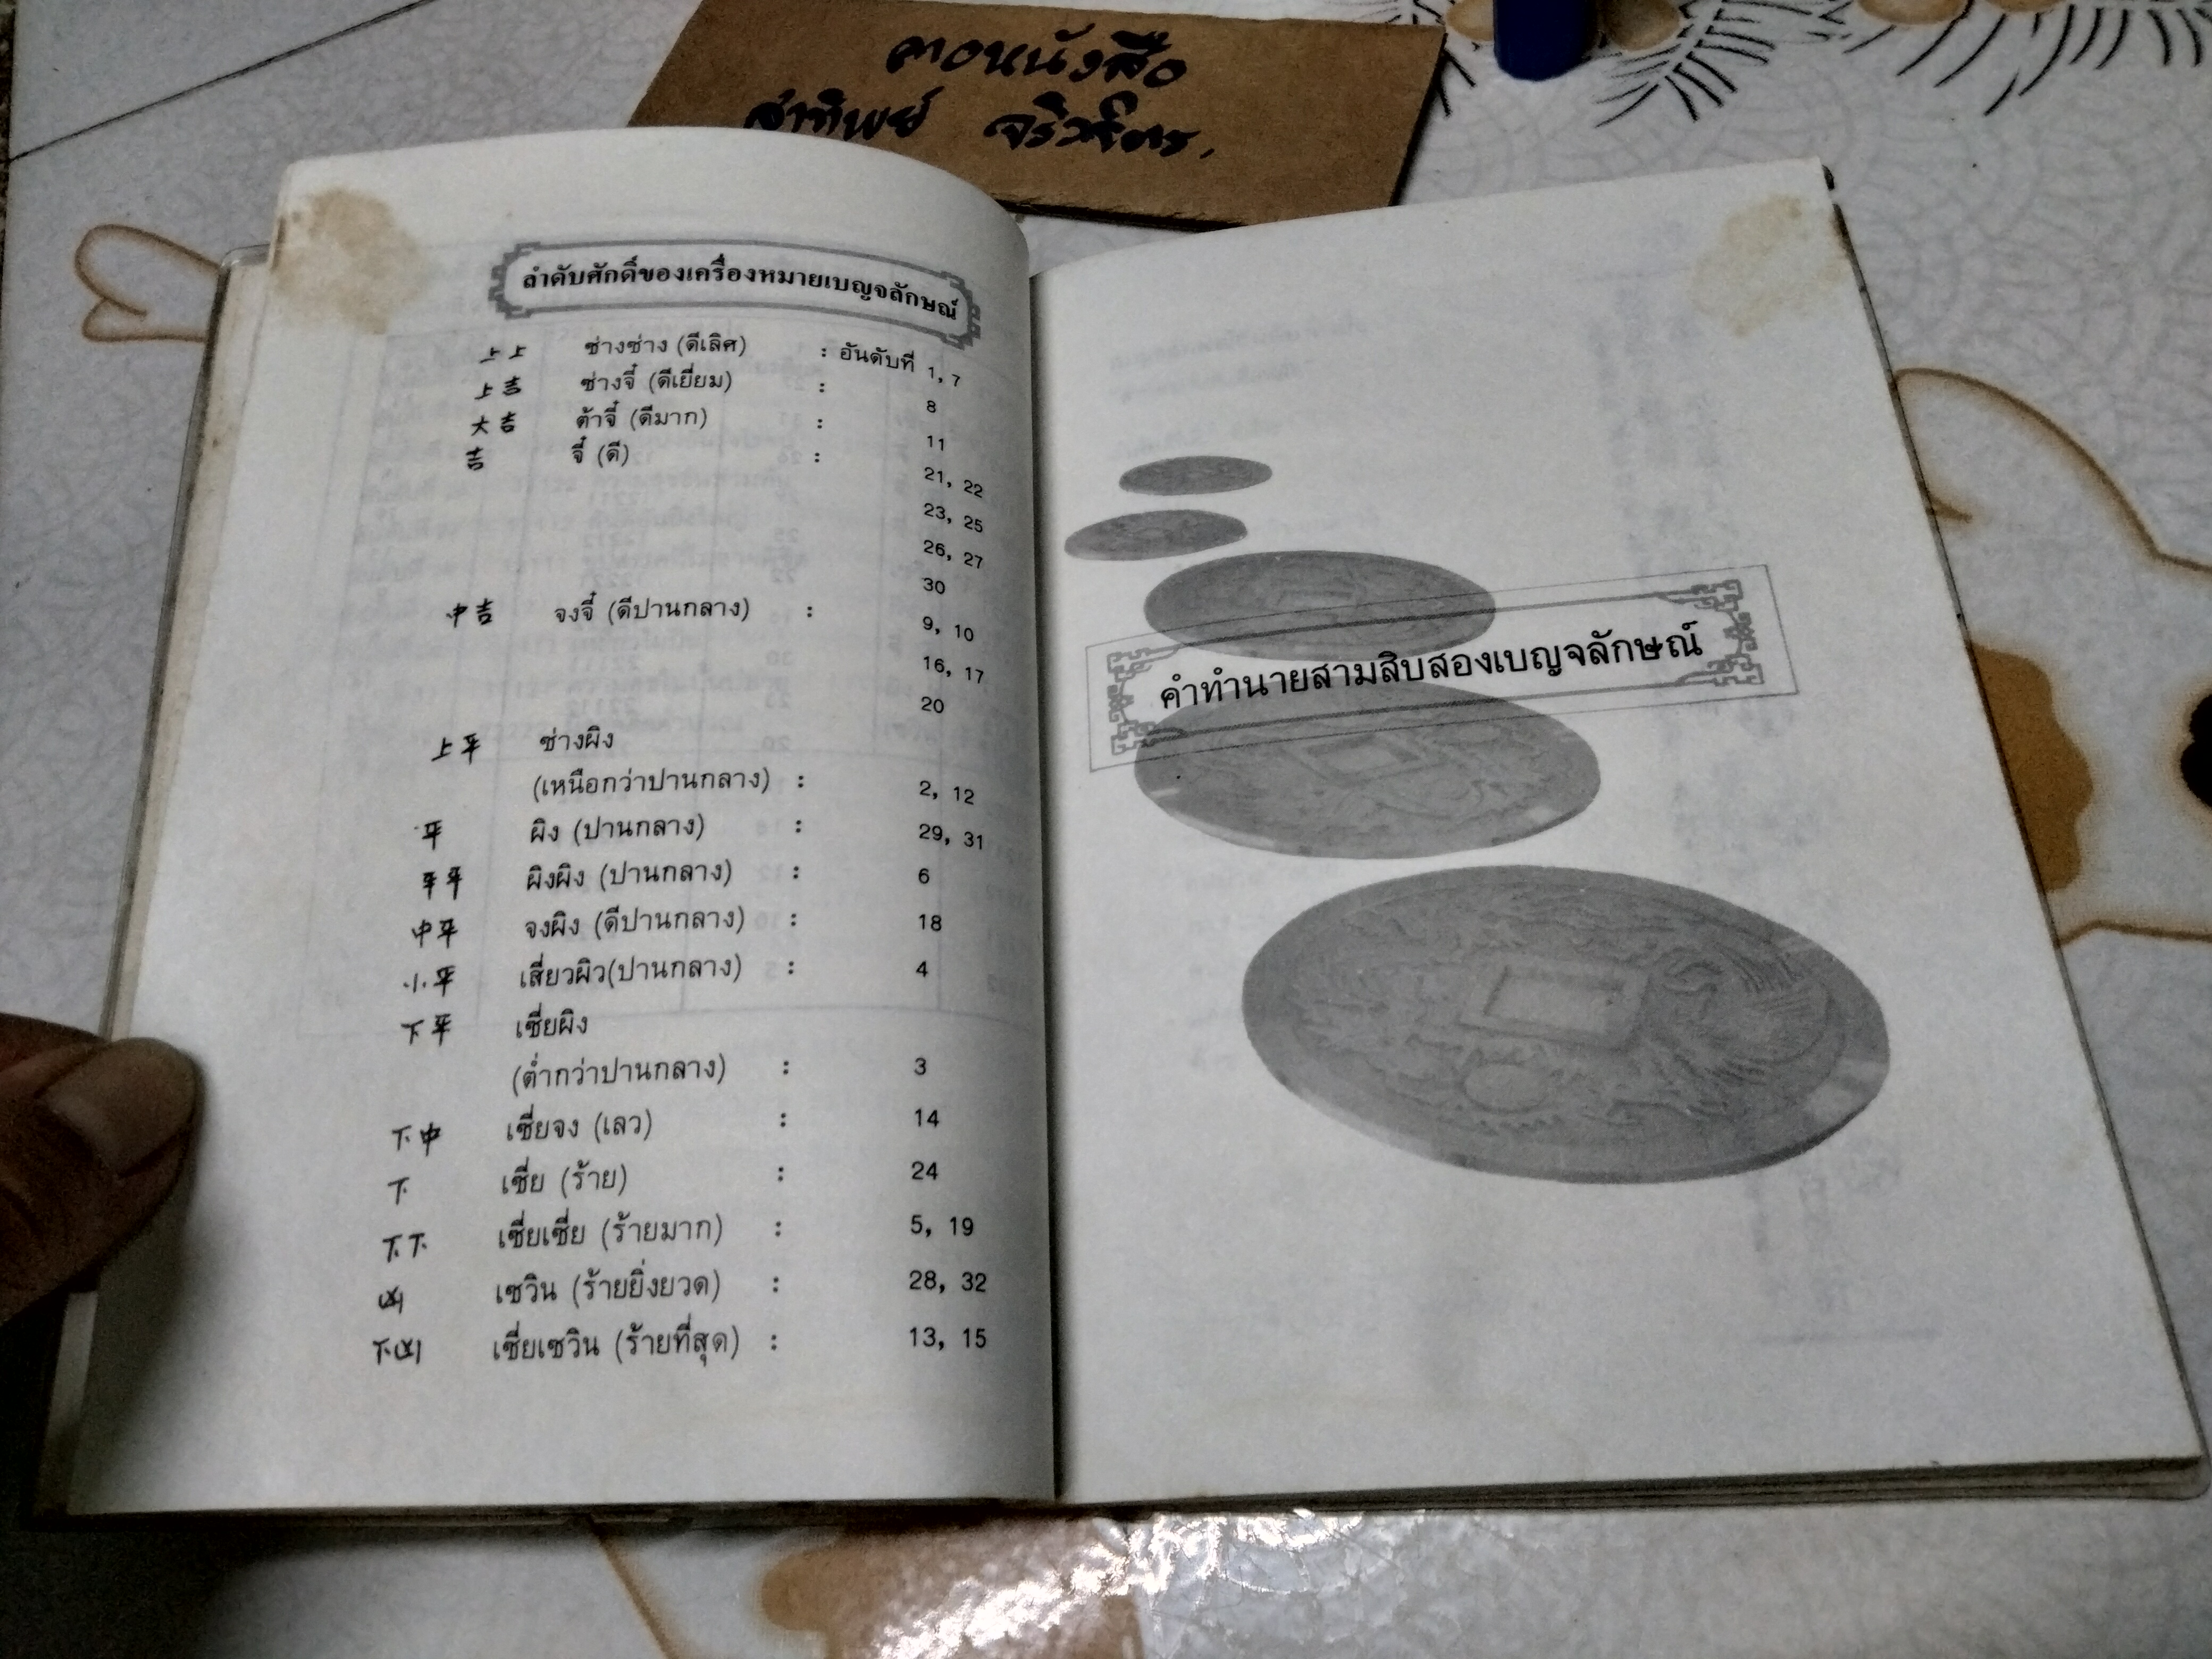 ลำดับศักดิ์ของเครื่องหมายเบญจลักษณ์
上上 ซ่างซ่าง (ดีเลิศ) : อันดับที่ 1, 7
上吉 ซ่างจี๋ (ดีเยี่ยม) : 8
大吉 ต้าจี๋ (ดีมาก) : 11
吉 จี๋ (ดี) : 21, 22
23, 25
26, 27
30
中吉 จงจี๋ (ดีปานกลาง) : 9, 10
16, 17
20
上平 ซ่างผิง
(เหนือกว่าปานกลาง) : 2, 12
平 ผิง (ปานกลาง) : 29, 31
平平 ผิงผิง (ปานกลาง) : 6
中平 จงผิง (ดีปานกลาง) : 18
小平 เสี่ยวผิว(ปานกลาง) : 4
下平 เซี่ยผิง
(ต่ำกว่าปานกลาง) : 3
下中 เซี่ยจง (เลว) : 14
下 เซี่ย (ร้าย) : 24
下下 เซี่ยเซี่ย (ร้ายมาก) : 5, 19
凶 เซวิน (ร้ายยิ่งยวด) : 28, 32
下凶 เซี่ยเซวิน (ร้ายที่สุด) : 13, 15
คำทำนายสามสิบสองเบญจลักษณ์